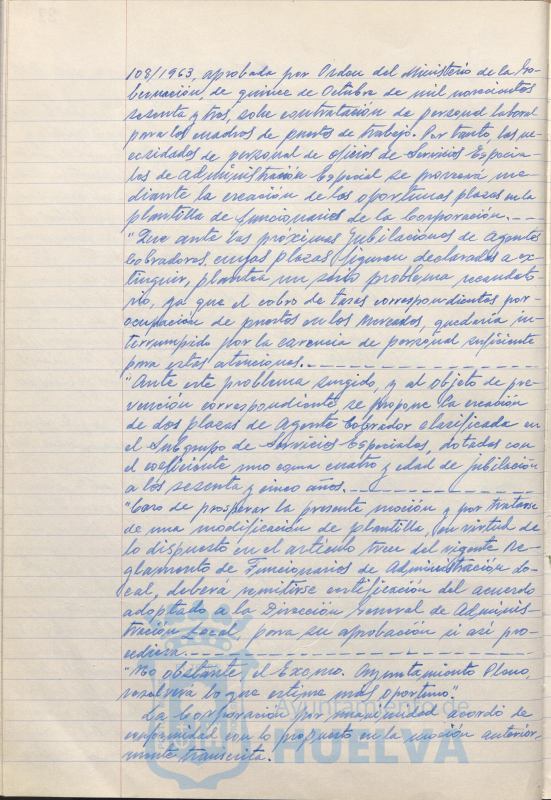 108/1963, aprobada por Orden del Ministerio de la Go-
bernación, de quince de Octubre de mil novecientos
sesenta y tres, sobre contratación de personal laboral
para los cuadros de puestos de trabajo. Por tanto las ne-
cesidades de personal de oficios de Servicios Especia-
les de Administración Especial se proveerá me-
diante la creación de las oportunas plazas en la
plantilla de funcionarios de la Corporación. - -
"Que ante las próximas jubilaciones de Agentes
Cobradores, cuyas plazas figuran declaradas a ex-
tinguir, plantea un serio problema recaudato-
rio, ya que el cobro de tasas correspondientes por
ocupación de puestos en los Mercados, quedaría in-
terrumpido por la carencia de personal suficiente
para estas atenciones. - - - - - - - - - -
"Ante este problema surgido, y al objeto de pre-
vención correspondiente, se propone la creación
de dos plazas de Agente Cobrador clasificada en
el Subgrupo de Servicios Especiales, dotadas con
el coeficiente uno coma cuatro y edad de jubilación
a los sesenta y cinco años. - - - - - - - - -
"Caso de prosperar la presente moción y por tratarse
de una modificación de plantilla, en virtud de
lo dispuesto en el artículo trece del vigente Re-
glamento de Funcionarios de Administración Lo-
cal, deberá remitirse certificación del acuerdo
adoptado a la Dirección General de Adminis-
tración Local, para su aprobación si así pro-
cediera. - - - - - - - - - - - - - -
"No obstante el Excmo. Ayuntamiento Pleno,
resolverá lo que estime más oportuno".
La Corporación por unanimidad acordó de
conformidad con lo propuesto en la moción anterior-
mente transcrita.
Ayuntamiento de
HUELVA